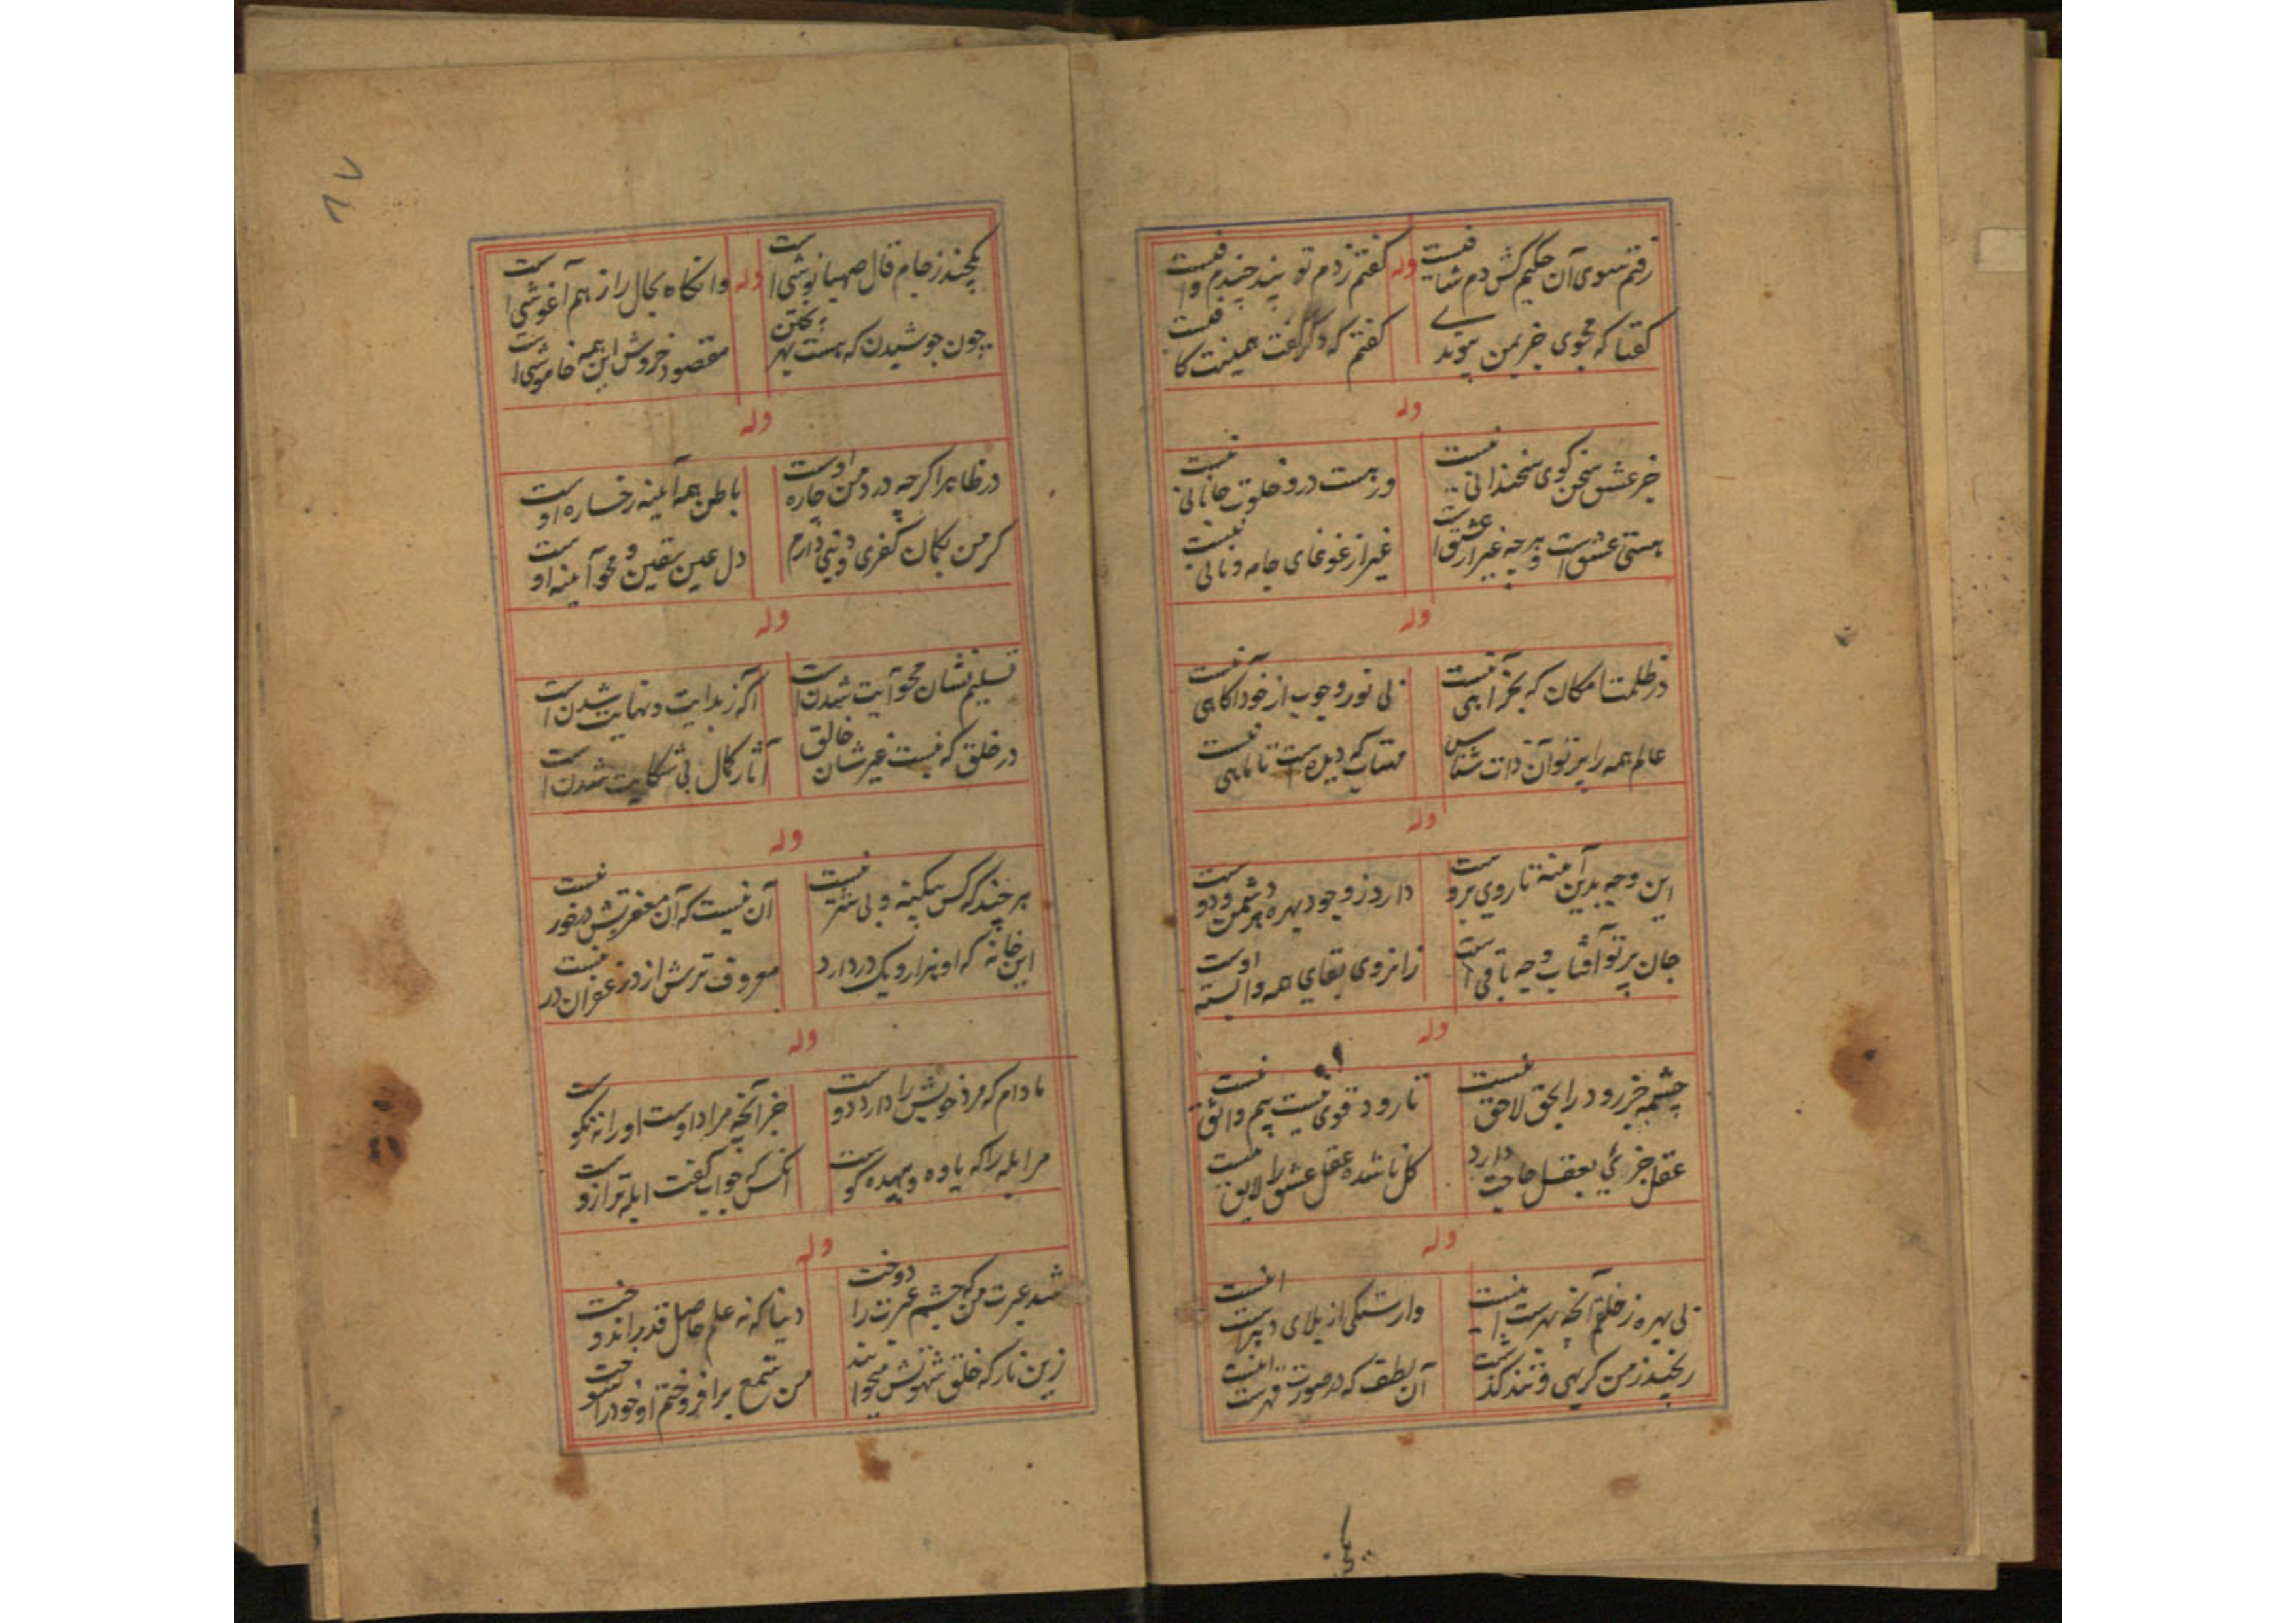 رفتم سوی آن حکیم کش دم شافیست
وله
گفتم ز دم تو پند چندم وافیست
گفتا که مجوی جز یمن پیوندی
گفتم که دگر گفت همینت کافیست
وله
جز عشق سخن کوی سخندانی نیست
ور هست درو خلوت جانانی نیست
هستی عشق است و هر چه غیر از عشق است
غیر از غوغای جامه و نانی نیست
وله
در ظلمت امکان که بجز آهی نیست
بی نور وجوب از خود آگاهی نیست
عالم همه را پرتو آن ذات شناس
مهتاب که دیده است تا ماهی نیست
وله
این وجه بدین آینه تا روی بروست
دارد ز وجود بهره هر دشمن و دوست
جان پرتو آفتاب وجه باقی است
زانروی بقای همه وابسته اوست
وله
چشمه جز رود را بحق لاحق نیست
تا رود قوی نیست بیم واثق نیست
عقل جزئی بعقل حاجت دارد
کل ناشده عقل عشق را لایق نیست
وله
بی بهره ز خلقم آنچه بهرست اینست
وارستگی از بلای دهرست اینست
رنجید ز من کریهی و تند گذشت
آن لطف که در صورت قهرست اینست
یکچند ز جام قال صهبا نوشی است
وله
وانگاه بحال راز هم آغوشی است
چون جوشیدن که هست بهر پختن
مقصود خروش این همه خاموشی است
وله
در ظاهر اگر چه درد من چاره اوست
باطن همه آیینه رخساره اوست
گر من بگمان کفری و دینی دارم
دل عین یقین و محو آیینه اوست
وله
تسلیم نشان محو آیت شدن است
آگه ز بدایت و نهایت شدن است
در خلق که نیست غیر شان خالق
آثار کمال بی شکایت شدن است
وله
هر چند که کس بیکینه و بی شر نیست
آن نیست که آن مغفرتش درخور نیست
این خانه که او هزار و یک در دارد
معروف ترش از در غفران در نیست
وله
مادام که مرد خویش را دارد دوست
جز آنچه مراد اوست او را نه نکوست
مر ابله را که یاوه و بیهده گوست
آنکس که جواب گفت ابله تر ازوست
وله
شد عبرت من که چشم عبرت را دوخت
دنیا که نه علم حاصل قدر اندوخت
زین نار که خلق شهوتش میخوانند
من شمع برافروختم او خود را سوخت